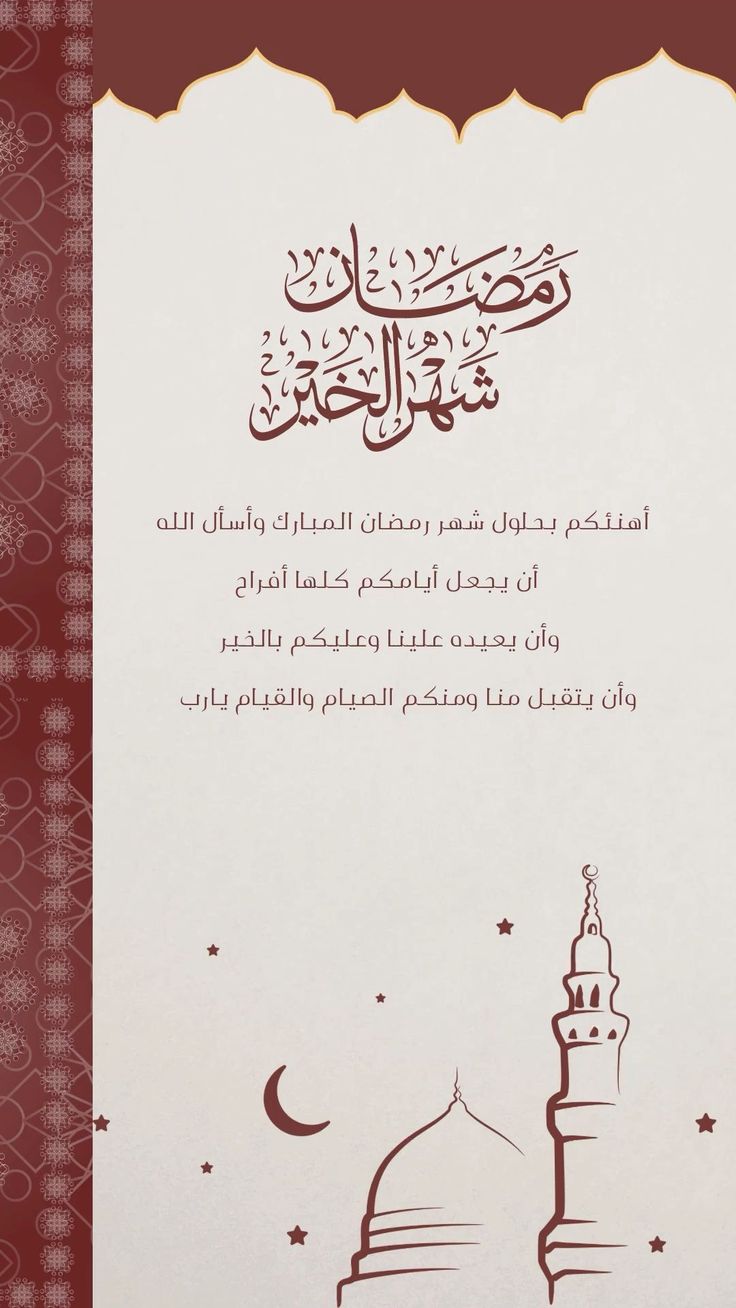 رَمَضَان
شَهْرُ الخَيْر
أهنئكم بحلول شهر رمضان المبارك وأسأل الله
أن يجعل أيامكم كلها أفراح
وأن يعيده علينا وعليكم بالخير
وأن يتقبل منا ومنكم الصيام والقيام يارب